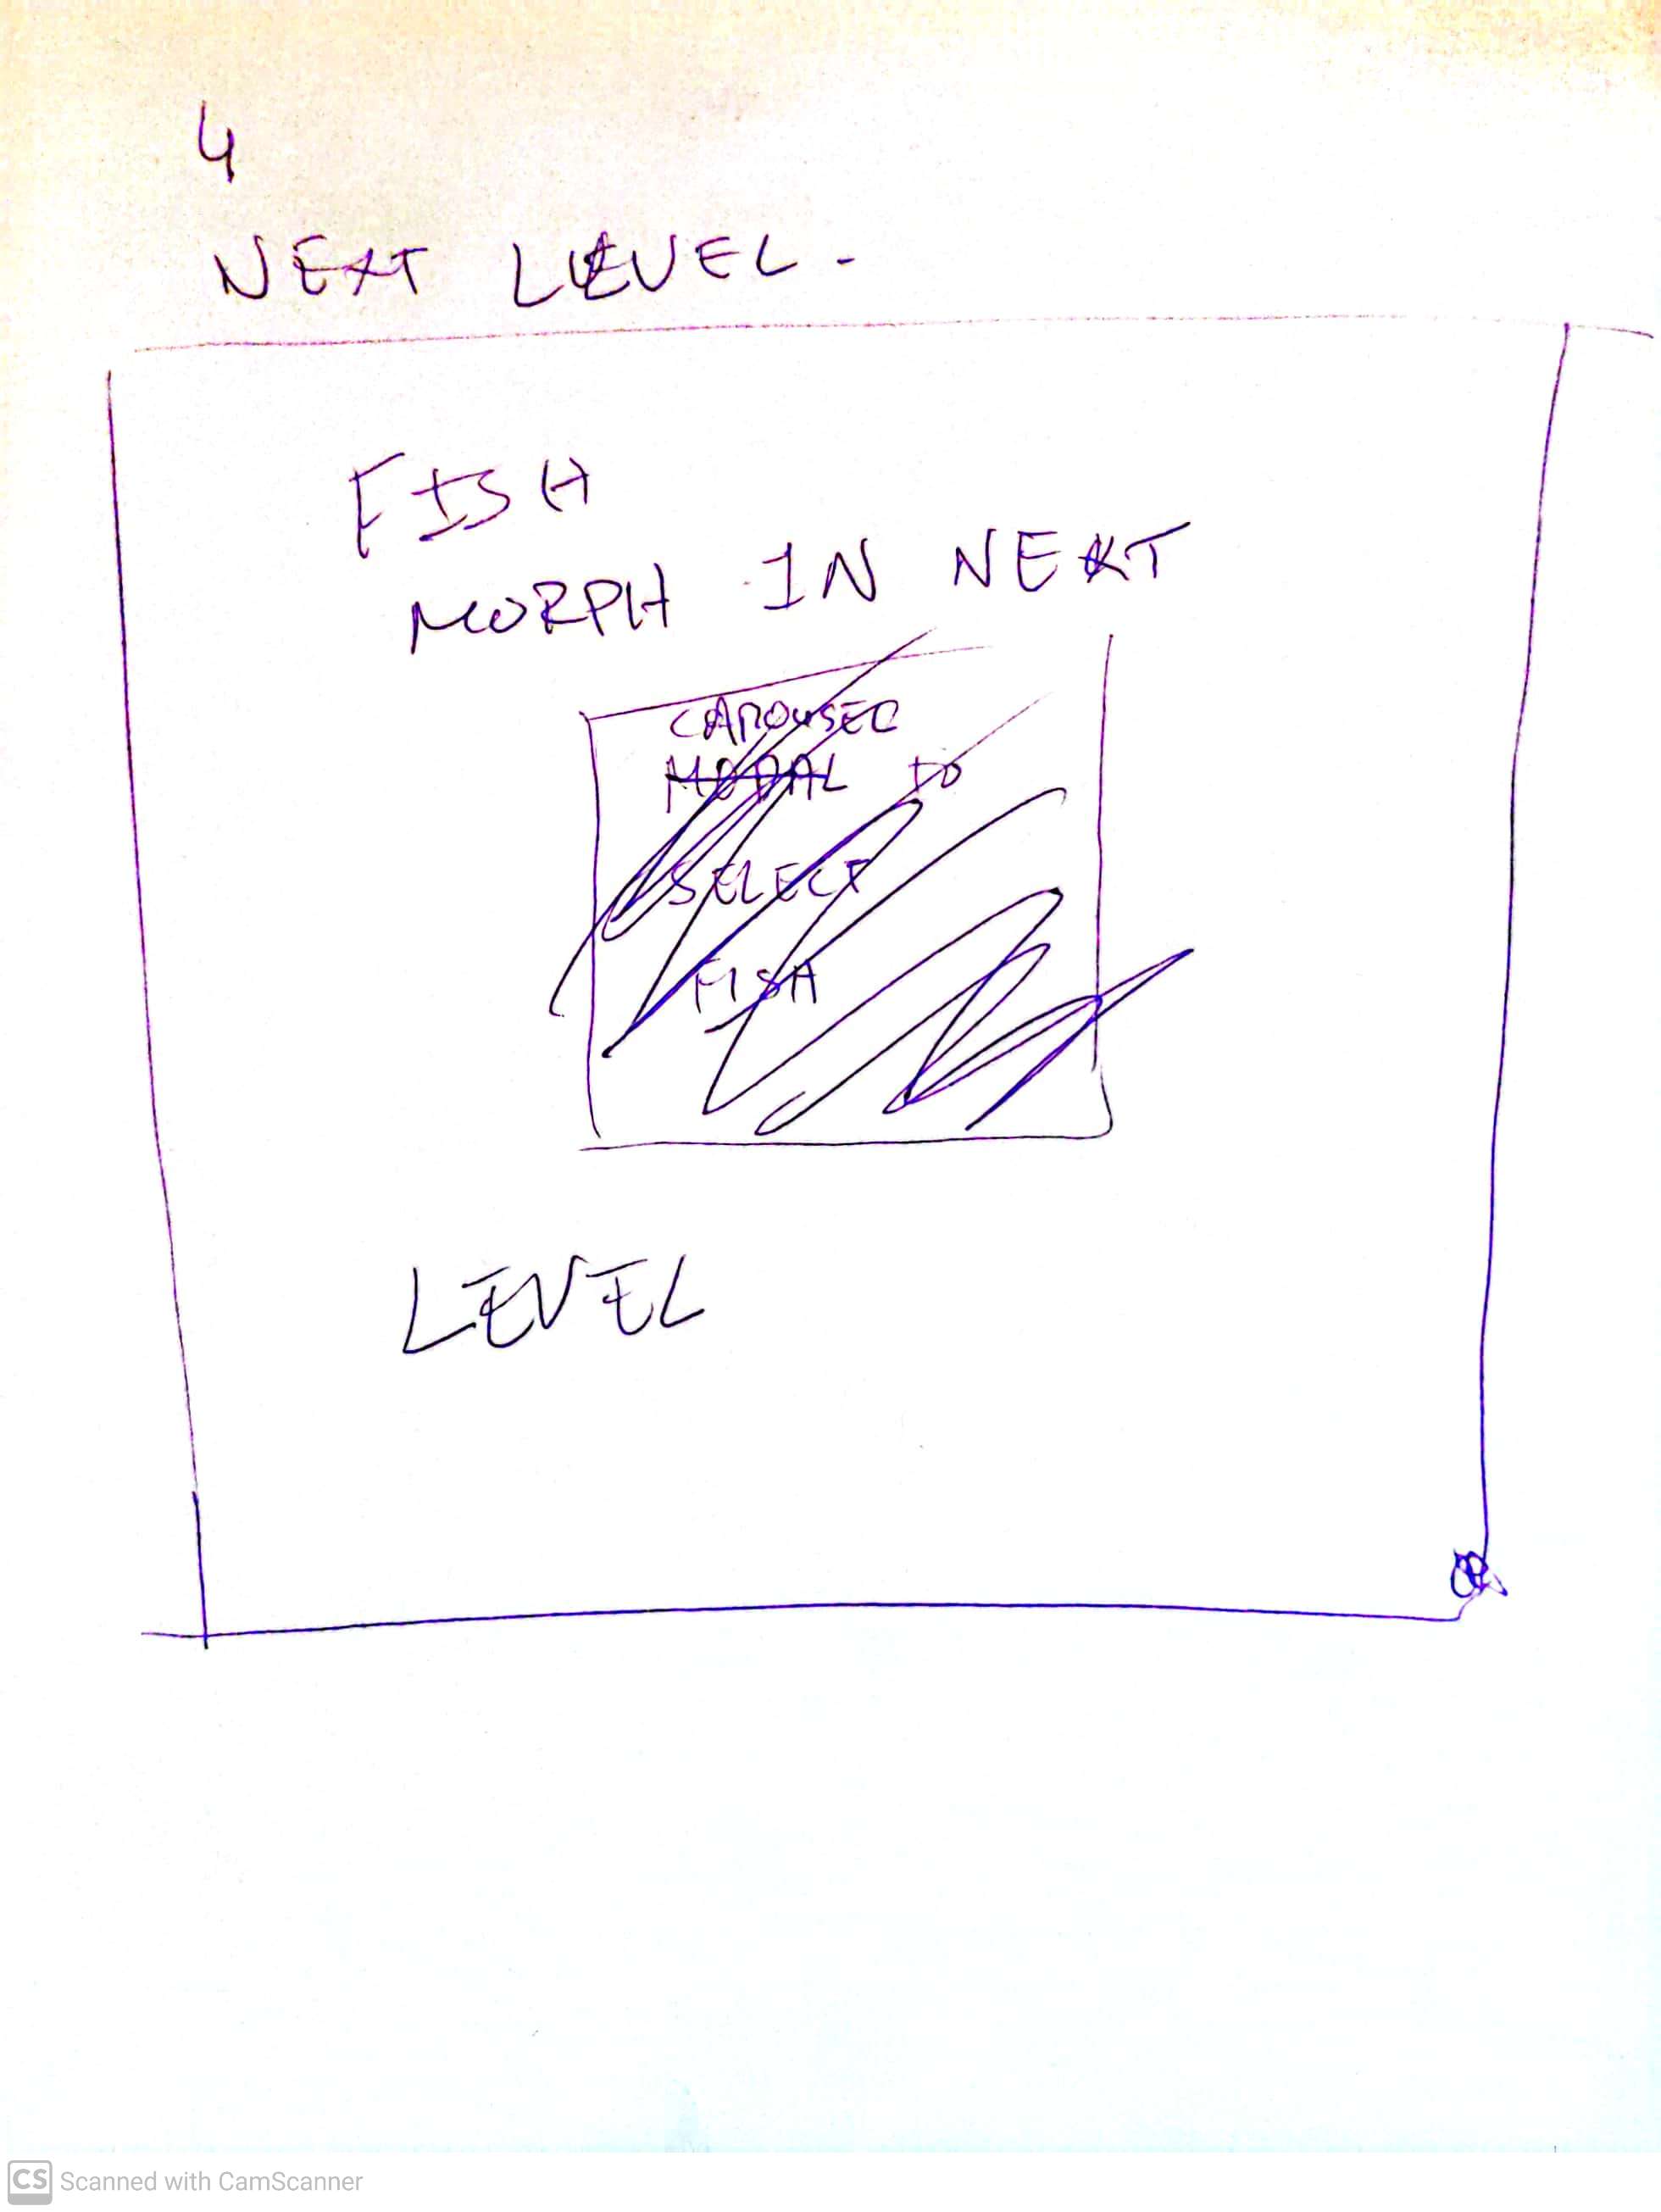 4
NEXT LEVEL.
FISH
MORPH IN NEXT
CAROUSEL
MODAL TO
SELECT
FISH
LEVEL
CS Scanned with CamScanner